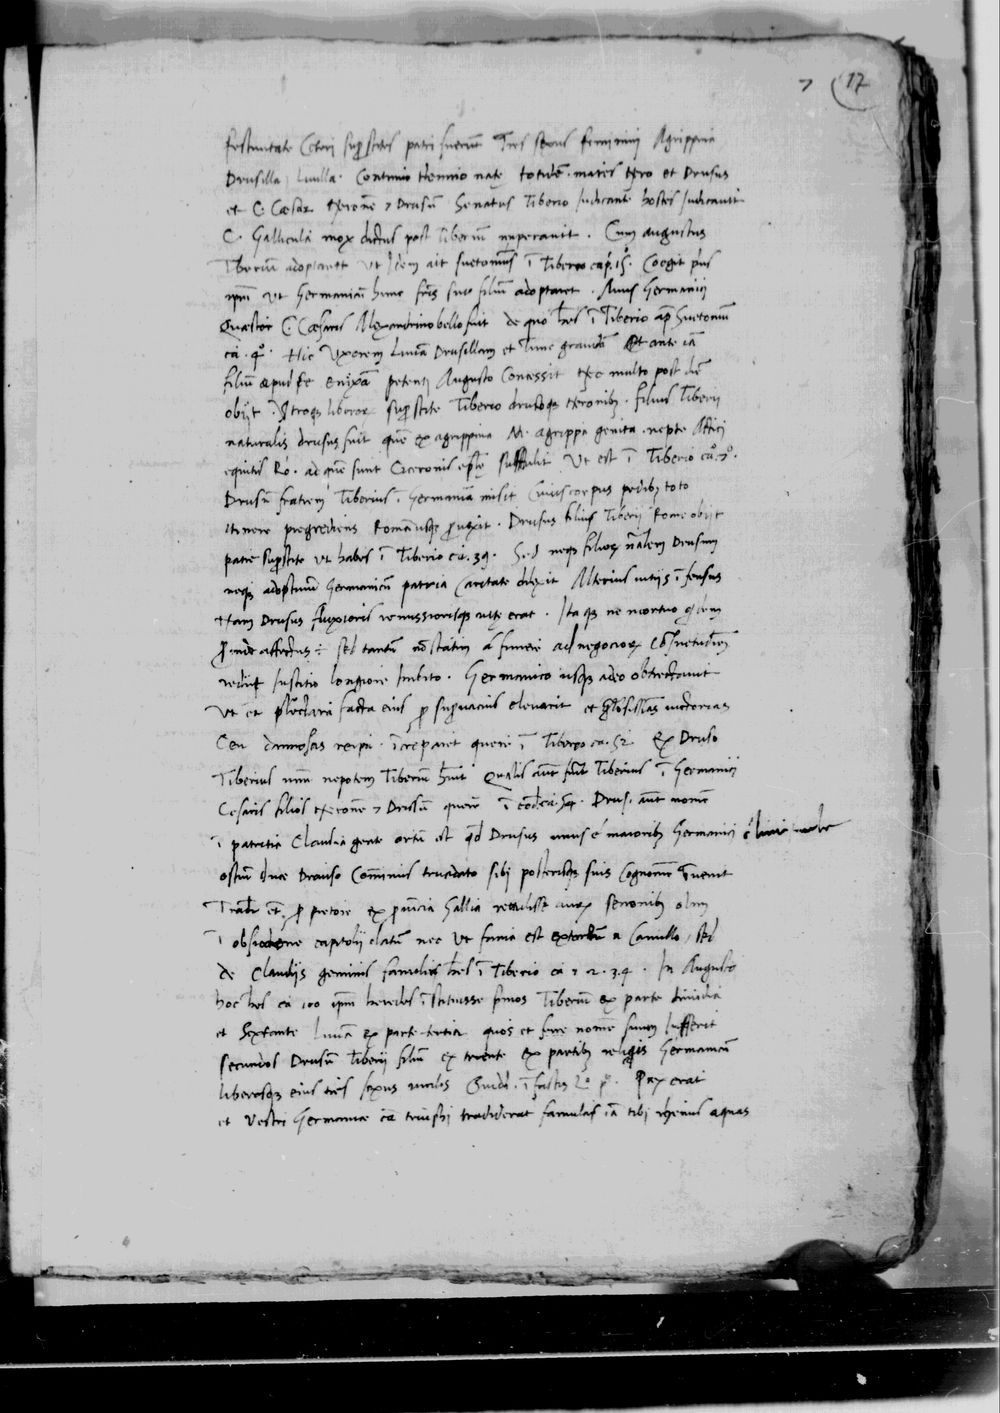 7 17
festivitate Ceteri sup̄stites patri fuerūt Tres sexus feminini Agrippina
Drusilla Livilla. Continuo triennio nate totidē. mares Nero et Drusus
et C. Cæsar Neronē 7 Drusū Senatus Tiberio judicante hostes judicavit
C. Gallicula mox dictus post Tiberiū imperavit. Cum augustus
Tiberiū adoptaret ut Idem ait suetonius ī Tiberio cap. 15. Coegit prius
ipm̄ ut Germanicū hunc fr̄is sui filiū adoptaret. Avus Germanici
Quæstor C. Cæsaris Alexandrino bello fuit de quo hēs ī Tiberio ap̄ Suetoniū
ca. 4°. Hic Uxorem Liviā Drusillam et Tunc gravidā Et ante iā
filiū apud se enixā petenti Augusto Concessit Nec multo post diē
obijt. Utroq3 liberor sup̄stite Tiberio drusoq3 Neronib3. filius Tiberii
naturalis drusus fuit quē ex agrippina M. agrippa genita. nepte Attici
equitis Ro. ad quē sunt Ciceronis ep̄le sustulit Ut est ī Tiberio ca°. 7°.
Drusū fratrem Tiberius ī Germania misit Cuius corpus pedib3 toto
itinere pregrediens Romam usq3 p̄vexit. Drusus filius Tiberij Rome obijt
patre sup̄stite ut habes ī Tiberio ca. 39. Sed neq3 filior n̄alem Drusum
neq3 adoptivū Germanicū patria Caritate dilexit Alterius vitijs īfensus
Nam Drusus fluxioris remissiorisq3 vite erat. Itaq3 ne mortuo quidem
p̄inde affectus ÷ sed tantū nō statim a funere ad negocior Cōsuetudinē
rediit justitio longiore inhibito. Germanico usq3 adeo obtrectavit
Ut et p̄clara facta eius p̄ sup̄vacuis elevarit et gl̄osissimas victorias
Ceu damnosas reip̄. īcreparet quere ī Tiberio ca. 52 Ex Druso
Tiberius unū nepotem Tiberiū h̄uit Qualis aūt fuit Tiberius ī Germanici
Cesaris filios Neronē 7 Drusū quere ī eodē ca. 54. Drusi aūt nomē
ī patritia Claudia gente ortū est qđ Drusus unus ē maiorib3 Germanici
ostiū duce Drauso Cominus trucidato sibi posterisq3 suis Cognomē īvenit
Tradit et p̄ pretore ex p̄vincia Gallia retulisse aurū senonib3 olim
ī obsidione capitolij datū nec ut fama est extortū a Camillo, sed
de Claudijs geminis familia hēs ī Tiberio ca 1 2. 3. 4. In Augusto
hoc hēs ca 100 ipm̄ heredes īstituisse p̄mos Tiberiū ex parte dimidia
et Sextante Liviā ex parte tertia quos et ferre nomē suum Jusserit
secundos Drusū Tiberii filiū ex triente ex partib3 reliquis Germanicū
liberosq3 eius tres sexus virilis Ovidi. ī fastis L° p°. Pax erat
et Vestri Germanice cā triūphi tradiderat famulas iā tibi rhenus aquas